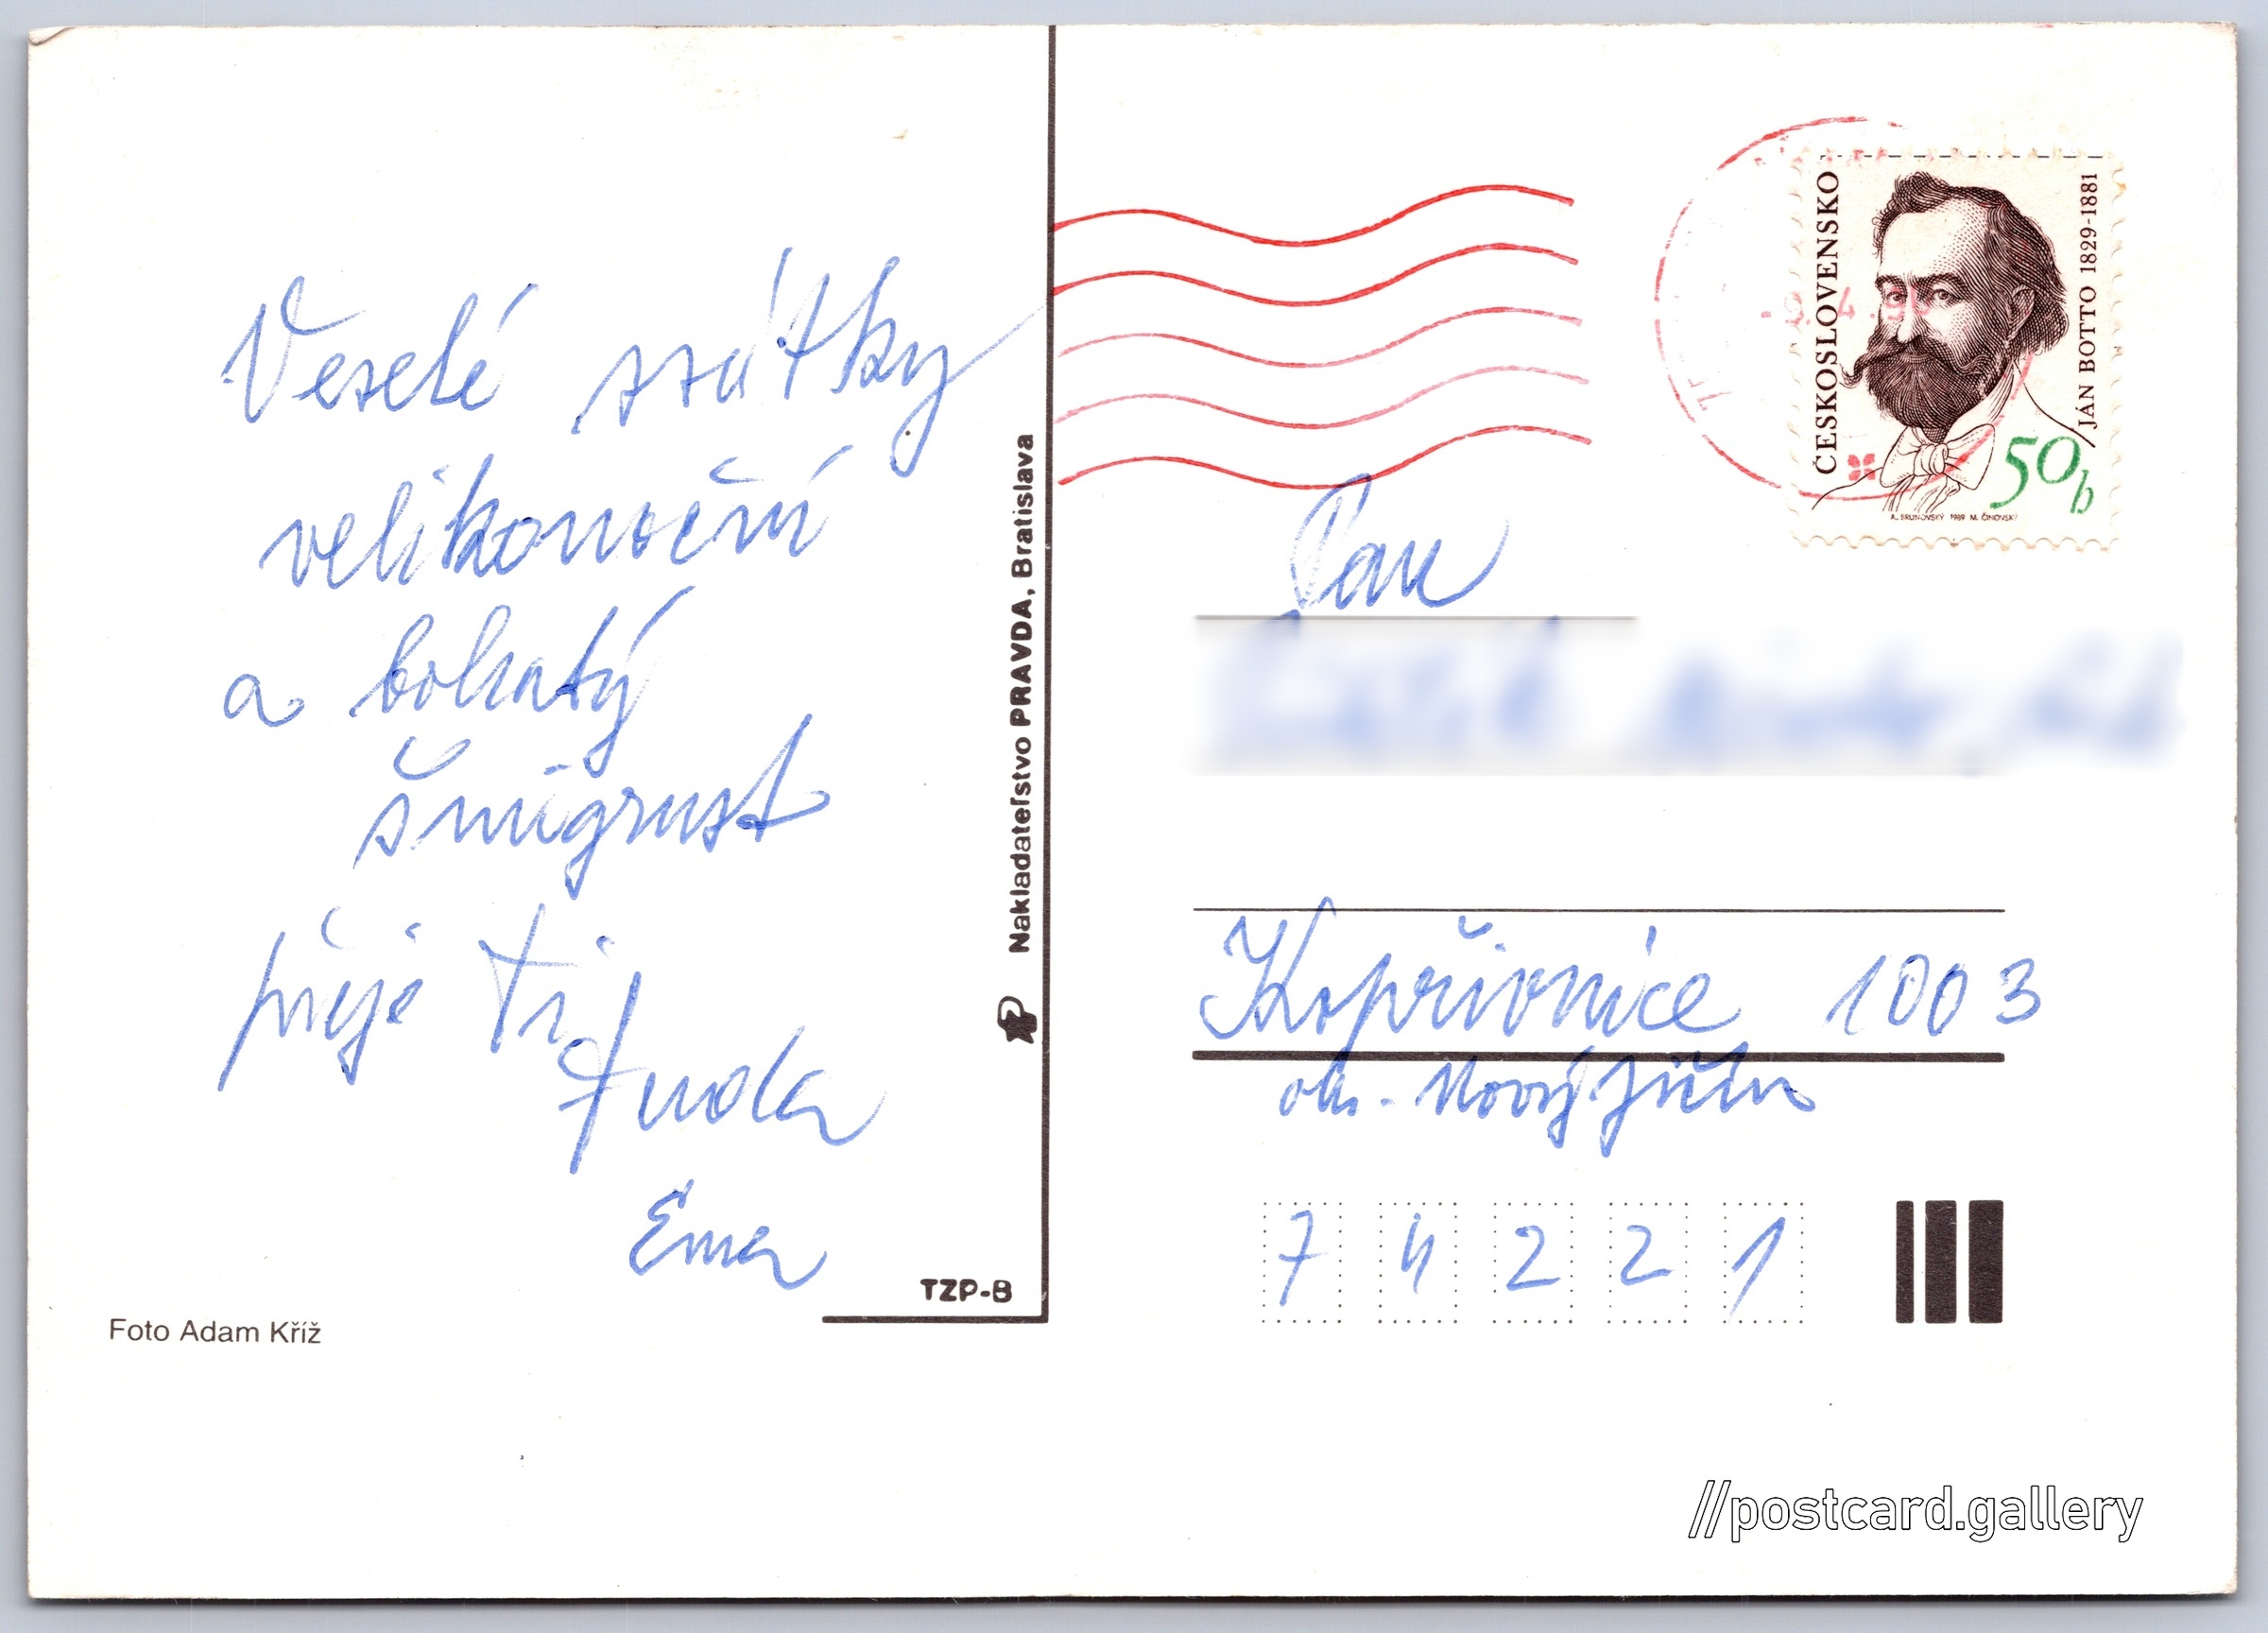 Veselé svátky
velikonoční
a bohatý
šmigrust
přeje Ti
Ema
Foto Adam Kříž
TZP-B
Nakladateľstvo PRAVDA, Bratislava
ČESKOSLOVENSKO
JÁN BOTTO 1829-1881
50h
A. BRUNOVSKÝ 1989 M. ČINOVSKÝ
Pan
Kopřivnice 1003
okr. Nový Jičín
74221
//postcard.gallery